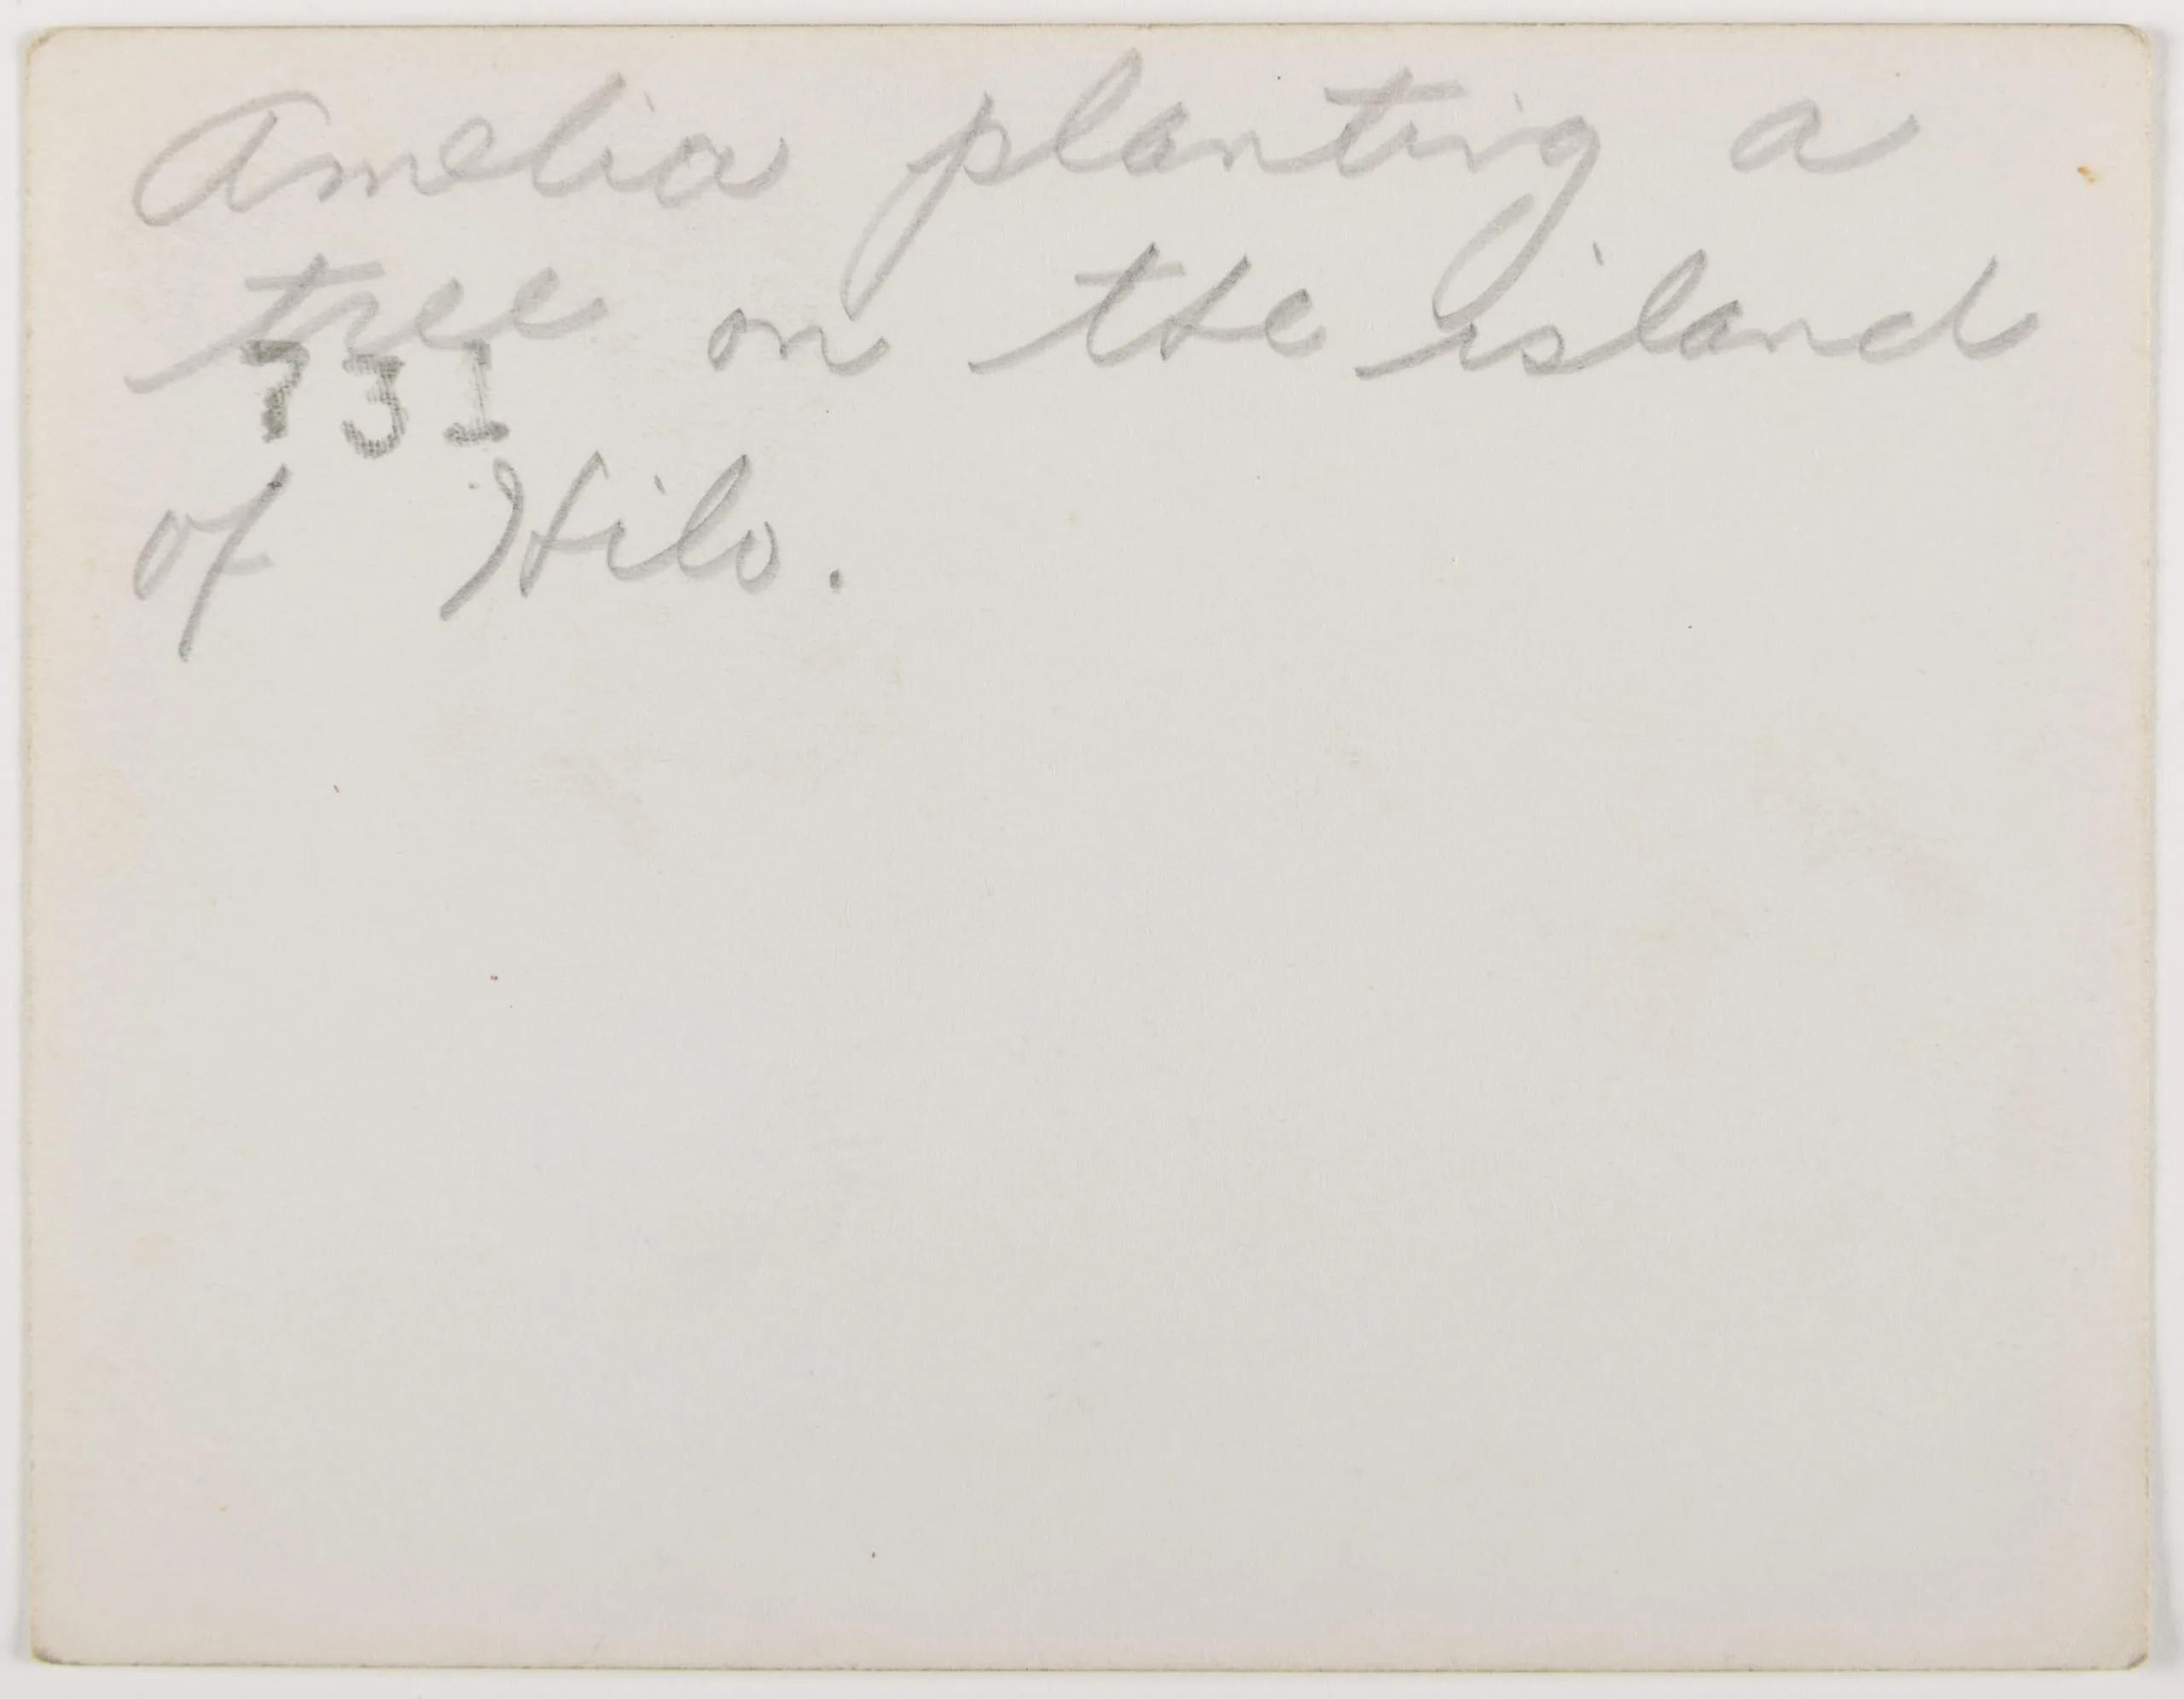 Amelia planting a
tree on the island
731
of Hilo.